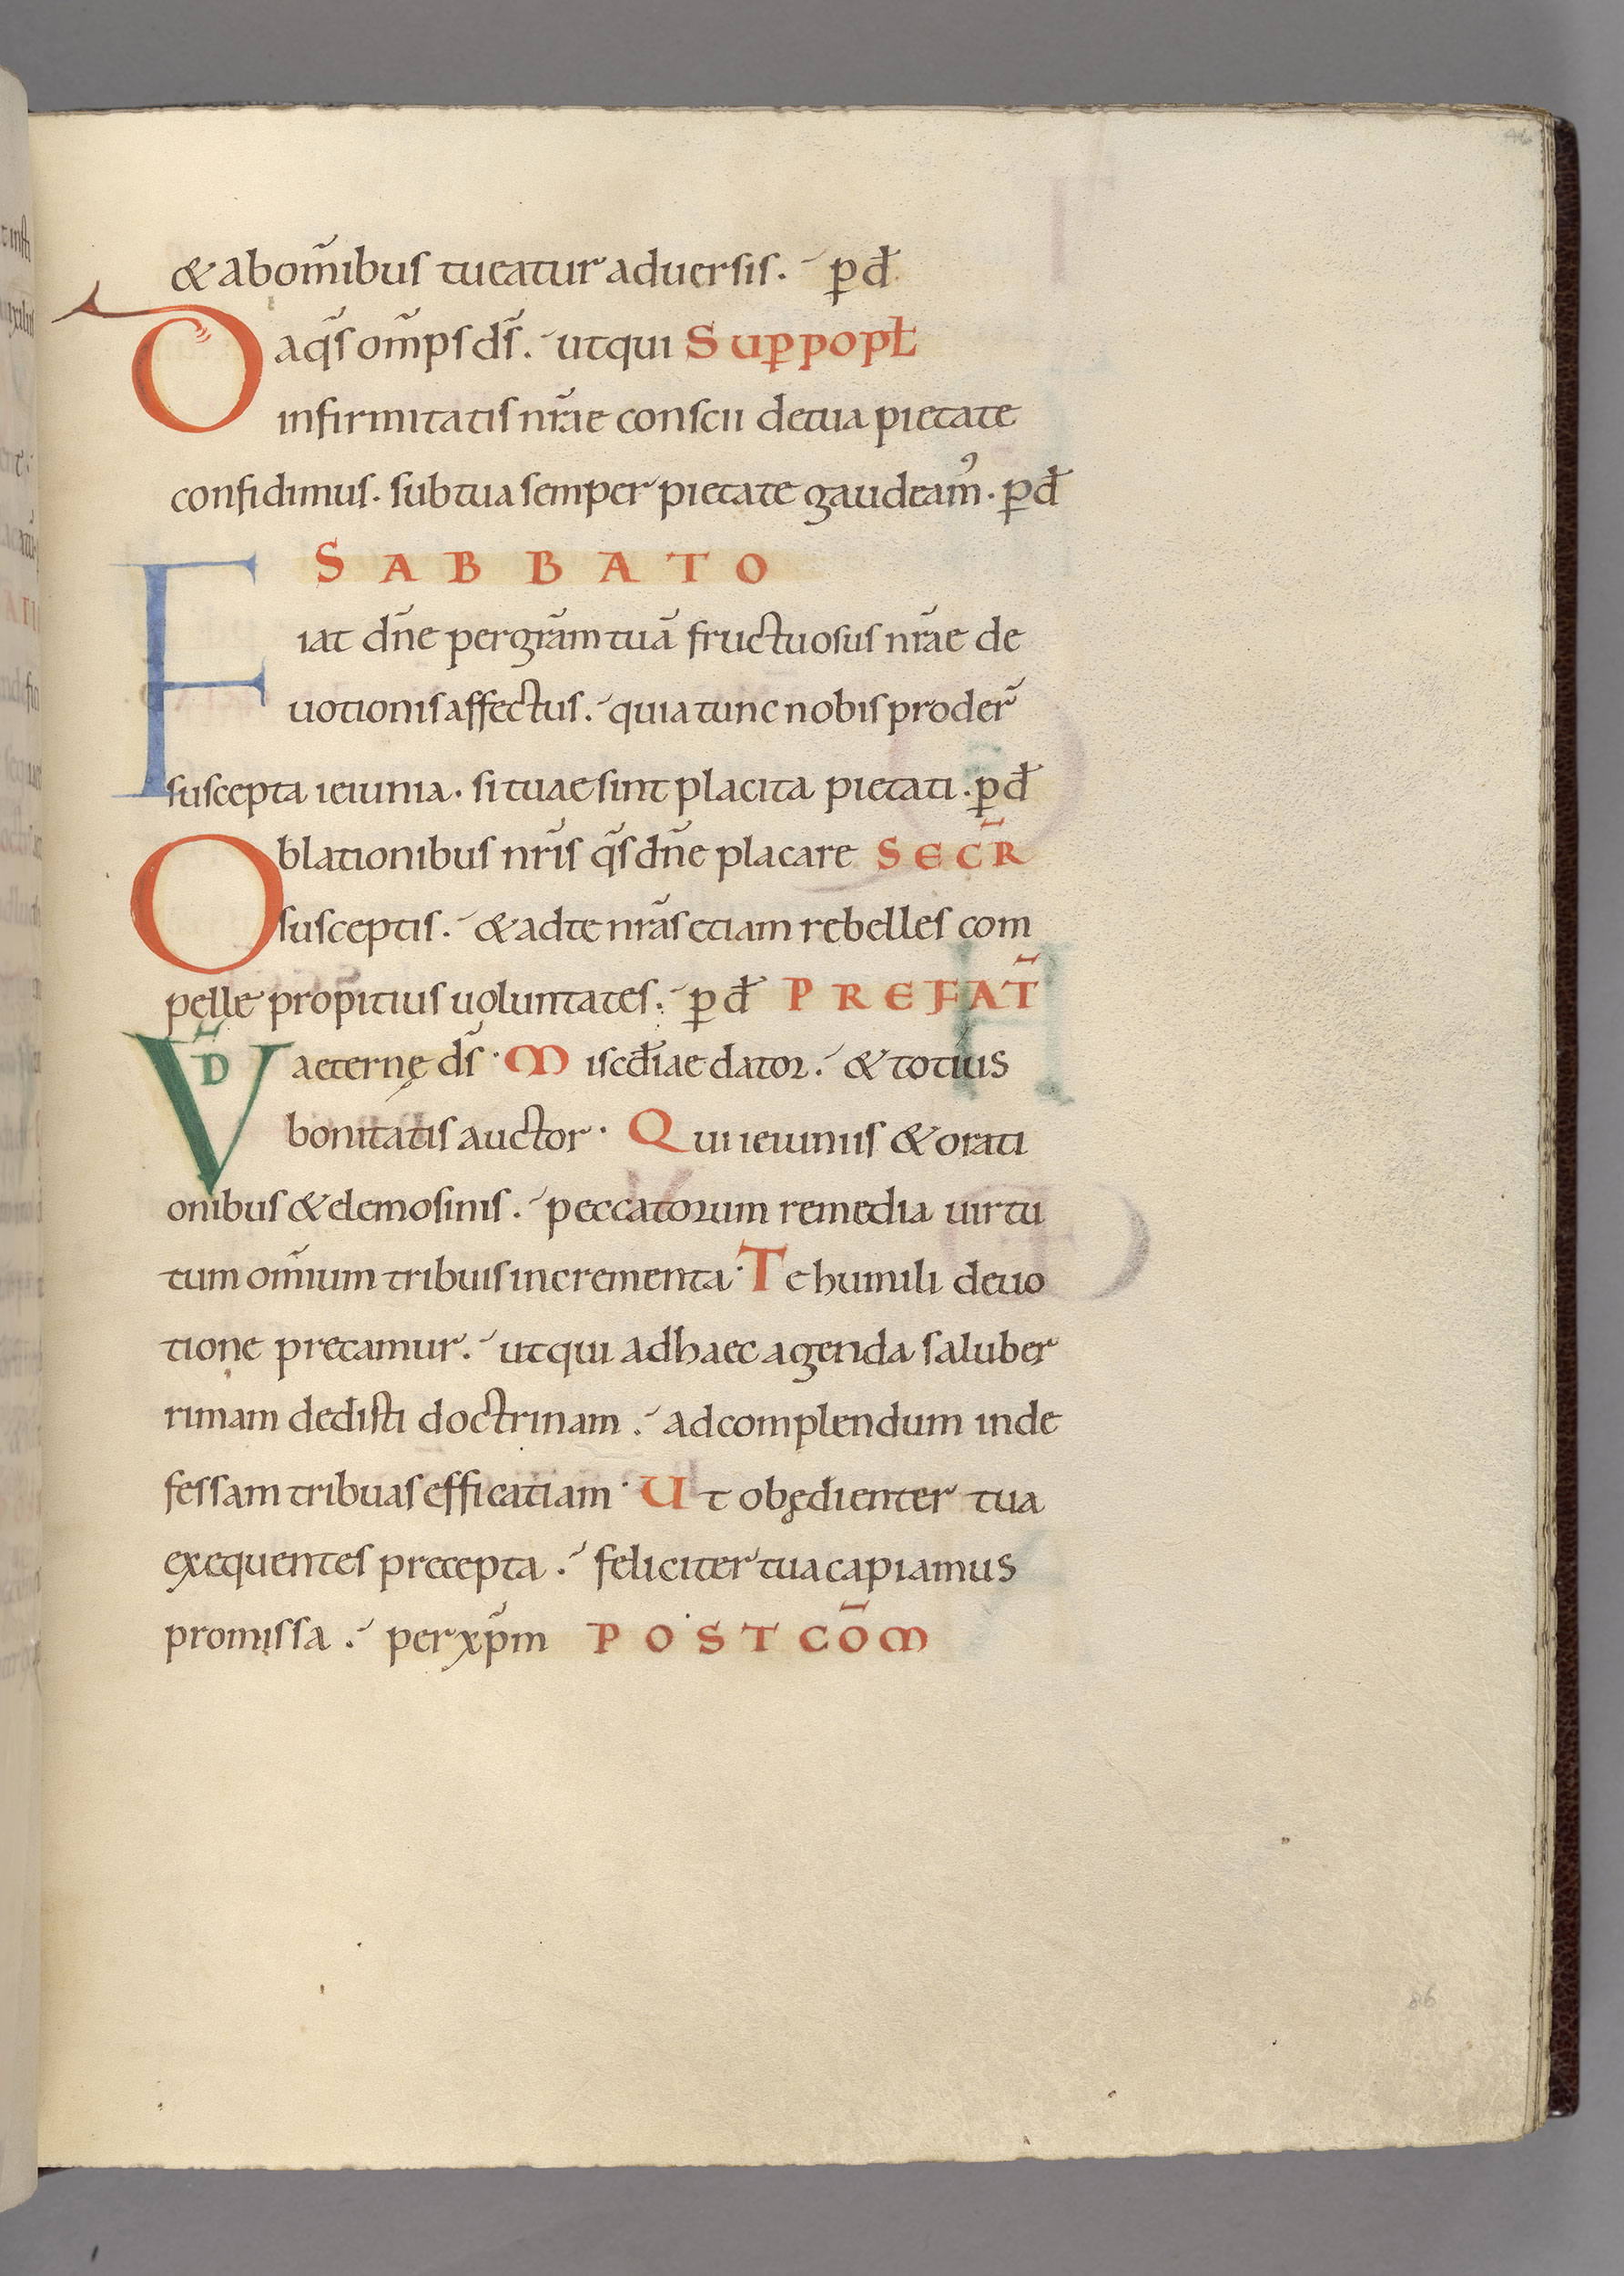 & abom̄ibus tueatur aduersis. p̱ đ
Da q̄s om̄ps d̄s. ut qui Sup̱ popł
infirmitatis nr̄ae conscii de tua pietate
confidimus. sub tua semper pietate gaudeam᾿. p̱ đ
SABBATO
Fiat dn̄e per gr̄am tuā fructuosus nr̄ae de
uotionis affectus. quia tunc nobis proder̄
suscepta ieiunia. si tuae sint placita pietati. p̱ đ
Oblationibus nr̄is q̄s dn̄e placare SECR̄
susceptis. & ad te nr̄as etiam rebelles com
pelle propitius uoluntates. p̱ đ PREFAT̄
VD̄ aeternę d̄s. Misc̄diae dator. & totius
bonitatis auctor. Qui ieiuniis & orati
onibus & elemosinis. peccatorum remedia uirtu
tum om̄ium tribuis incrementa. Te humili deuo
tione precamur. ut qui ad haec agenda saluber
rimam dedisti doctrinam. ad complendum inde
fessam tribuas efficatiam. Ut obędienter tua
exequentes precepta. feliciter tua capiamus
promissa. per xp̄m POST COM̄
86